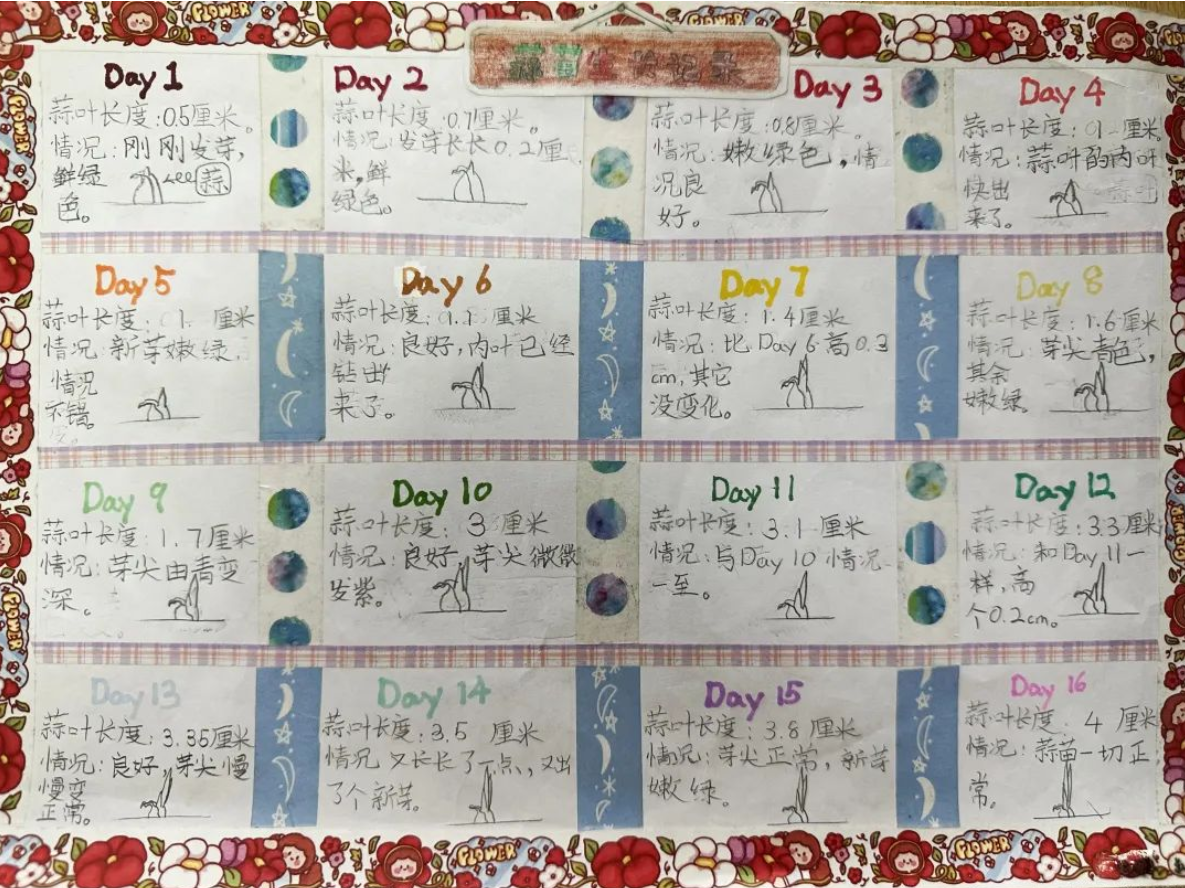 蒜苗生长记录
Day 1
蒜叶长度:0.5厘米。
情况:刚刚发芽,
鲜绿
色。
蒜
Day 2
蒜叶长度:0.7厘米。
情况:发芽长长0.2厘
米,鲜
绿色。
Day 3
蒜叶长度:0.8厘米。
情况:嫩绿色,情
况良
好。
Day 4
蒜叶长度:厘米。
情况:蒜叶的内叶
快出
来了。
Day 5
蒜叶长度:1.厘米
情况:新芽嫩绿,
情况
不错。
Day 6
蒜叶长度:厘米
情况:良好,内叶已经
钻出
来了。
Day 7
蒜叶长度:1.4厘米
情况:比Day 6高0.3
cm,其它
没变化。
Day 8
蒜叶长度:1.6厘米
情况:芽尖青色,
其余
嫩绿
Day 9
蒜叶长度:1.7厘米
情况:芽尖由青变
深。
Day 10
蒜叶长度:3厘米
情况:良好,芽尖微微
发紫。
Day 11
蒜叶长度:3.1厘米
情况:与Day 10情况
一至。
Day 12
蒜叶长度:3.3厘米
情况:和Day 11一
样,高
个0.2cm。
Day 13
蒜叶长度:3.35厘米
情况:良好,芽尖慢
慢变
正常。
Day 14
蒜叶长度:3.5 厘米
情况 又长长了一点,又出
了个新芽。
Day 15
蒜叶长度:3.8厘米
情况:芽尖正常,新芽
嫩绿。
Day 16
蒜叶长度. 4 厘米
情况:蒜苗一切正
常。
FLOWER
FLOWER
FLOWER
FLOWER
FLOWER
FLOWER